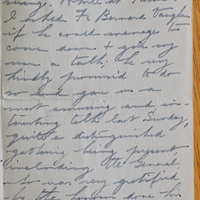 I asked Fr Bernard Vaughan
if he could manage to
come down & give my
men a talk. He very
kindly promised to do
so and gave us a
most amusing and in-
teresting talk last Sunday,
quite a distinguished
gathering being present
including the General,
who was very gratified
by the honour done his